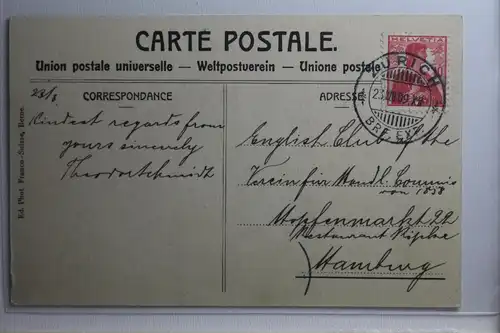 CARTE POSTALE.
Union postale universelle — Weltpostverein — Unione postale
HELVETIA
ZÜRICH
23.VII.09.XII
BRF. EXP.
CORRESPONDANCE
ADRESSE
23/8
Kindest regards from
yours sincerely
Theodor Schmidt
English Club of the
Verein für Handl. Commis
von 1858
Hopfenmarkt 22
Restaurant
Hamburg
Ed. Phot. Franco-Suisse, Berne.